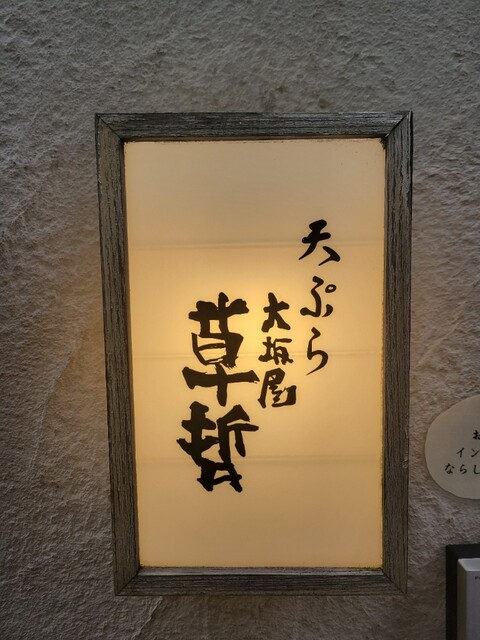 天ぷら
大坂屋
草哲
お
イン
ならし